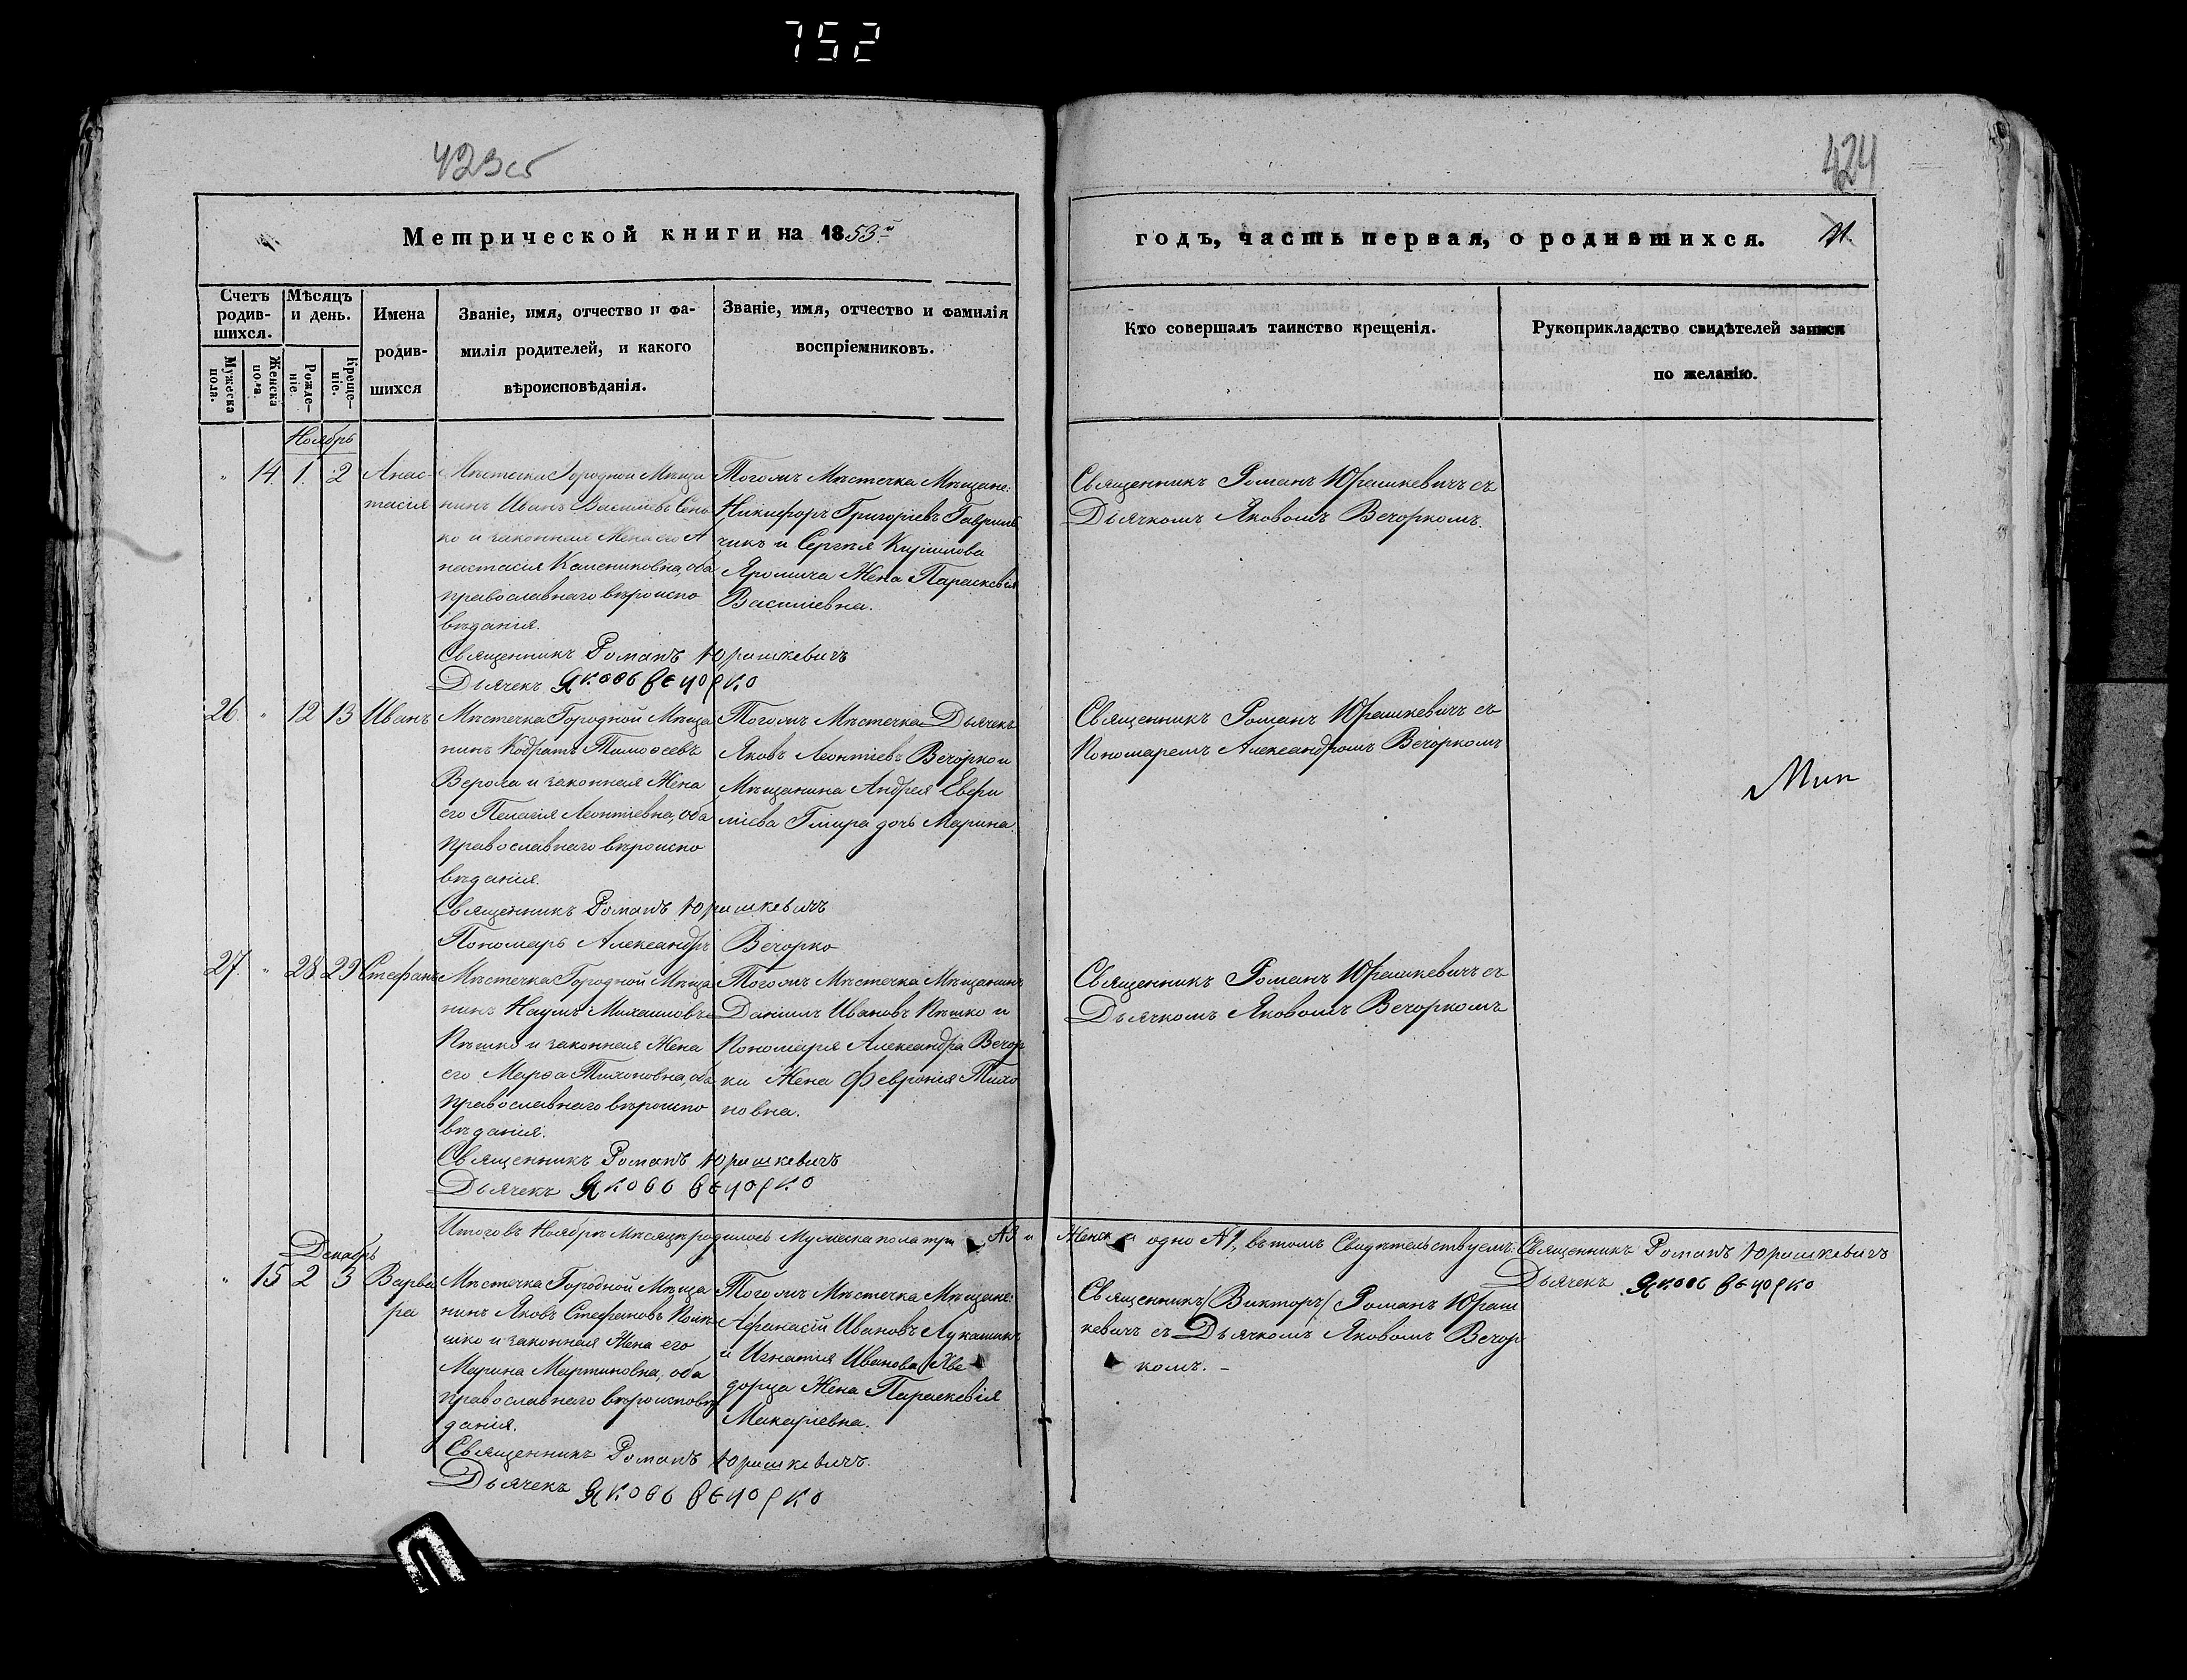 752
423об
424
Метрической книги на 1853й
годъ, часть первая, о родившихся.
Счетъ родившихся.
Мужеска пола.
Женска пола.
Мѣсяцъ и день.
Рожденіе.
Крещеніе.
Имена родившихся
Званіе, имя, отчество и фамилія родителей, и какого вѣроисповѣданія.
Званіе, имя, отчество и фамилія воспріемниковъ.
Кто совершалъ таинство крещенія.
Рукоприкладство свидѣтелей записи по желанію.
Ноябрь
" 14 1 2 Анас-
тасія
Мѣстечка Городной Мѣща
нинъ Иванъ Васильевъ
ко и законная Жена его А
настасія Калениковна, оба
православнаго вѣроиспо
вѣданія.
Священникъ Романъ Юрашкевичъ
Дьячекъ Яковъ Вечорко
Тогожъ Мѣстечка Мѣщане:
Никифоръ Григоріевъ Гаврил
чикъ и Сергѣя Кирилова
Яромича Жена Параскевія
Василіевна.
Священникъ Романъ Юрашкевичъ съ
Дьячкомъ Яковомъ Вечоркомъ.
26. " 12 13 Иванъ
Мѣстечка Городной Мѣща
нинъ Кодратъ Тимоѳеевъ
Верола и законная Жена
его Пелагія Леонтіевна, оба
православнаго вѣроиспо
вѣданія.
Священникъ Романъ Юрашкевичъ
Пономарь Александръ Вечорко
Тогожъ Мѣстечка Дьячекъ
Яковъ Леонтіевъ Вечорко и
Мѣщанина Андрея Евери
лова Гмира дочь Марина.
Священникъ Романъ Юрашкевичъ съ
Пономаремъ Александромъ Вечоркомъ
27. " 28 29 Стефанъ
Мѣстечка Городной Мѣща
нинъ Наумъ Михаиловъ
Пѣшко и законная Жена
его Марѳа Тихоновна, оба
православнаго вѣроиспо
вѣданія.
Священникъ Романъ Юрашкевичъ
Дьячекъ Яковъ Вечорко
Тогожъ Мѣстечка Мѣщанинъ
Даніилъ Ивановъ Пѣшко и
Пономаря Александра Вечор
ки Жена Февронія Тихо
новна.
Священникъ Романъ Юрашкевичъ съ
Дьячкомъ Яковомъ Вечоркомъ
Итого въ Ноябрѣ Мѣсяцѣ родилось Мужеска пола три №3 и Женска одно №1, въ томъ Свидѣтельствуемъ: Священникъ Романъ Юрашкевичъ
Дьячекъ Яковъ Вечорко
Декабрь
" 15 2 3 Варва
ра
Мѣстечка Городной Мѣща
нинъ Яковъ Стефановъ
шко и законная Жена его
Марина Мартиновна, оба
православнаго вѣроисповѣ
данія.
Священникъ Романъ Юрашкевичъ.
Дьячекъ Яковъ Вечорко
Тогожъ Мѣстечка Мѣщане:
Афанасій Ивановъ Лукашик
и Игнатія Иванова Хве
дорца Жена Параскевія
Макаріевна.
Священникъ /Викторъ/ Романъ Юраш
кевичъ съ Дьячкомъ Яковомъ Вечор
комъ. –